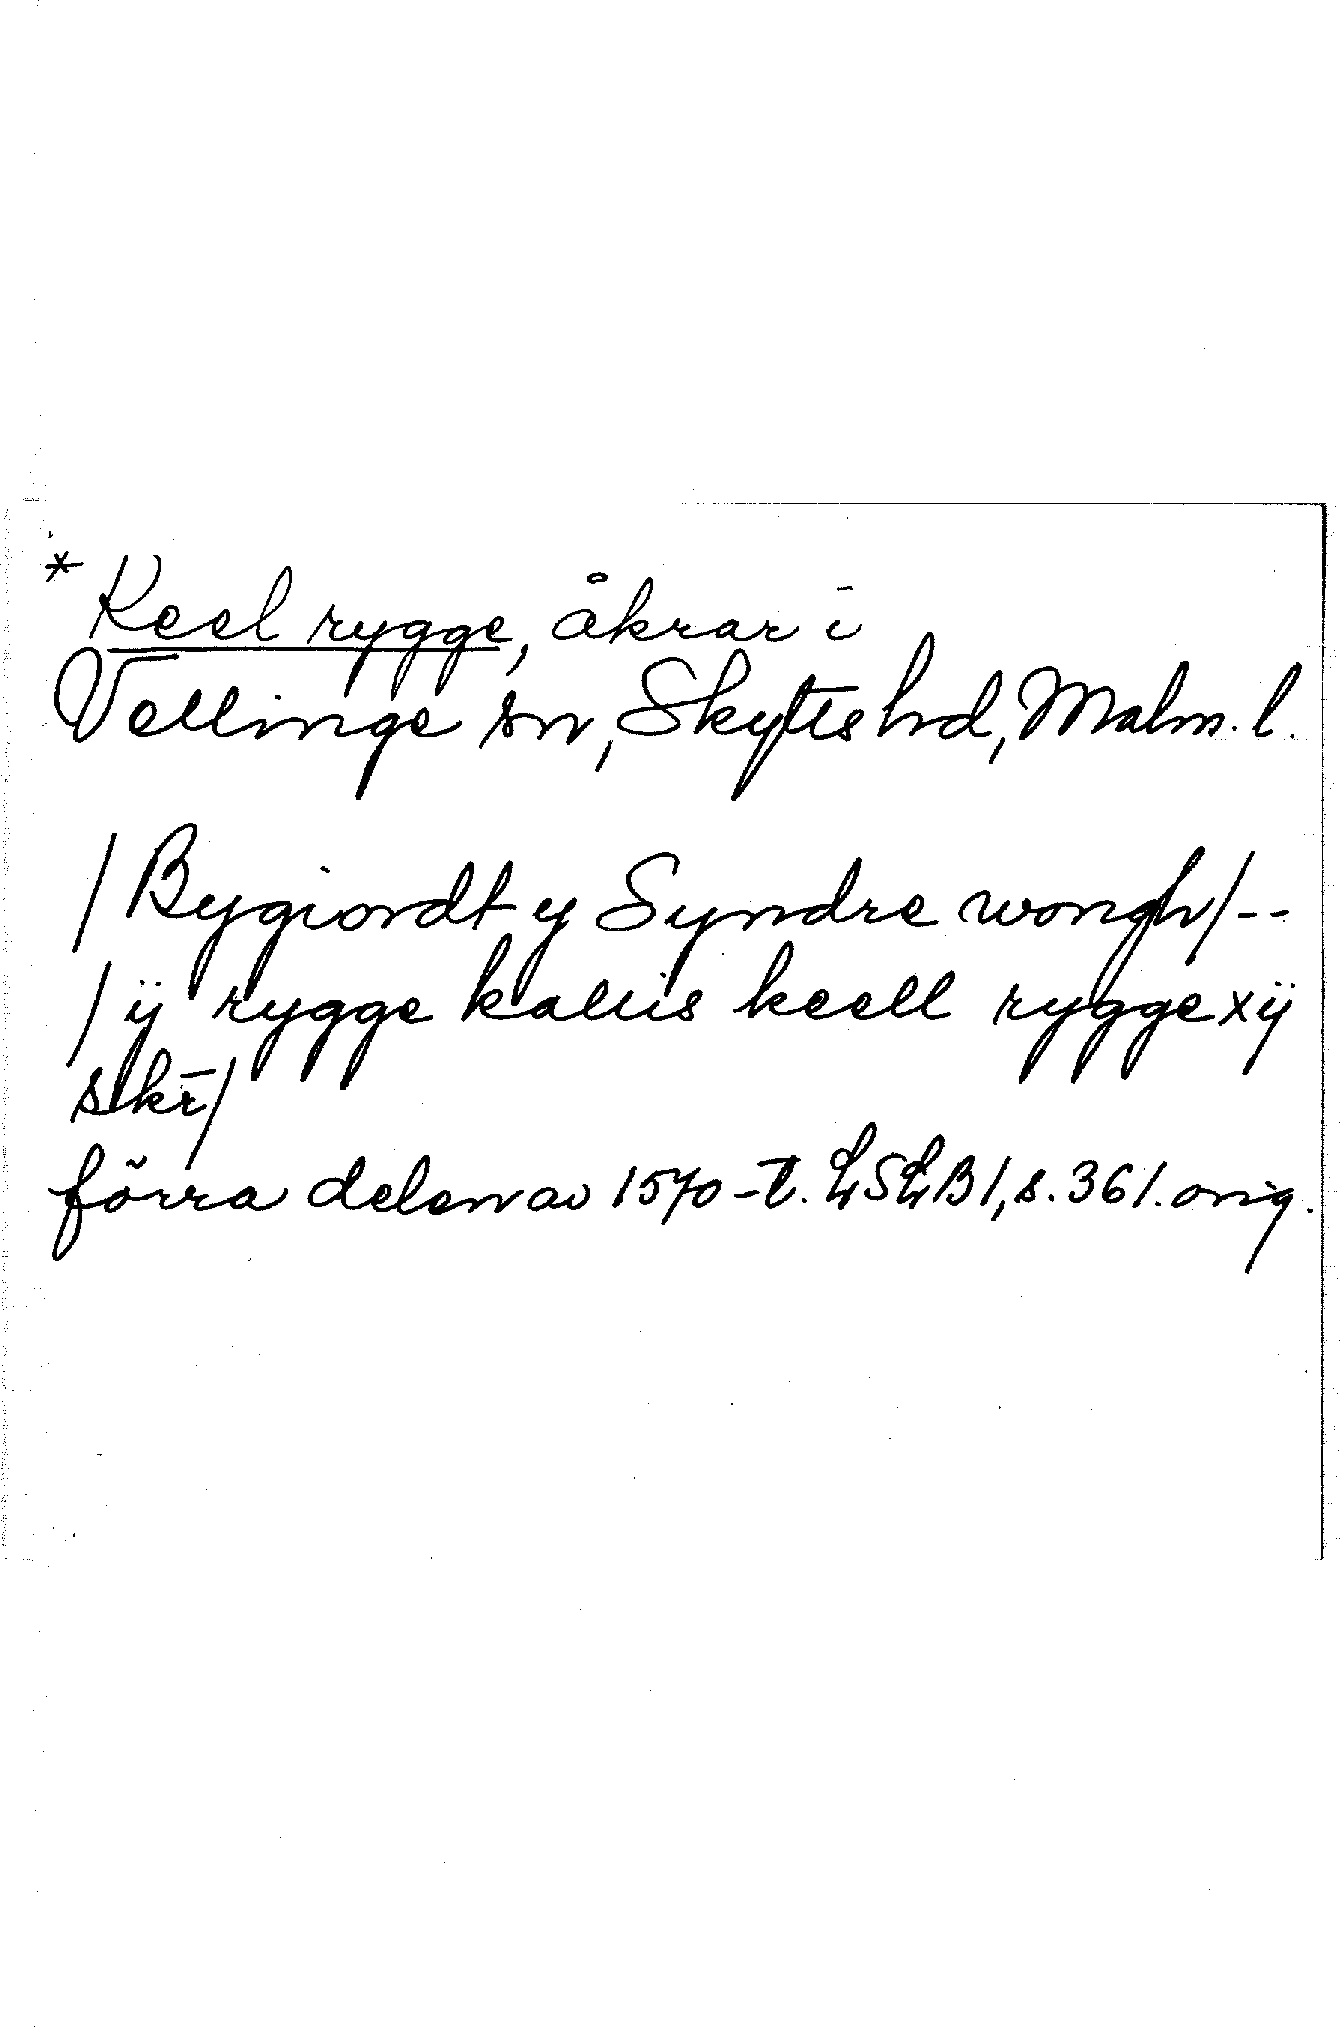 * Keel rygge, åkrar i
Vellinge sn, Skytts hd, Malm. l.
/Bygiordt y Syndre wongh/--
/ij rygge kallis keell rygge xij
skr̄/
förra delen av 1570-t. LSLB 1, s. 361. orig.